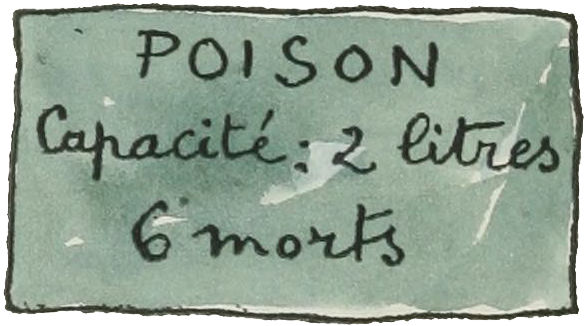 POISON
Capacité: 2 litres
6 morts